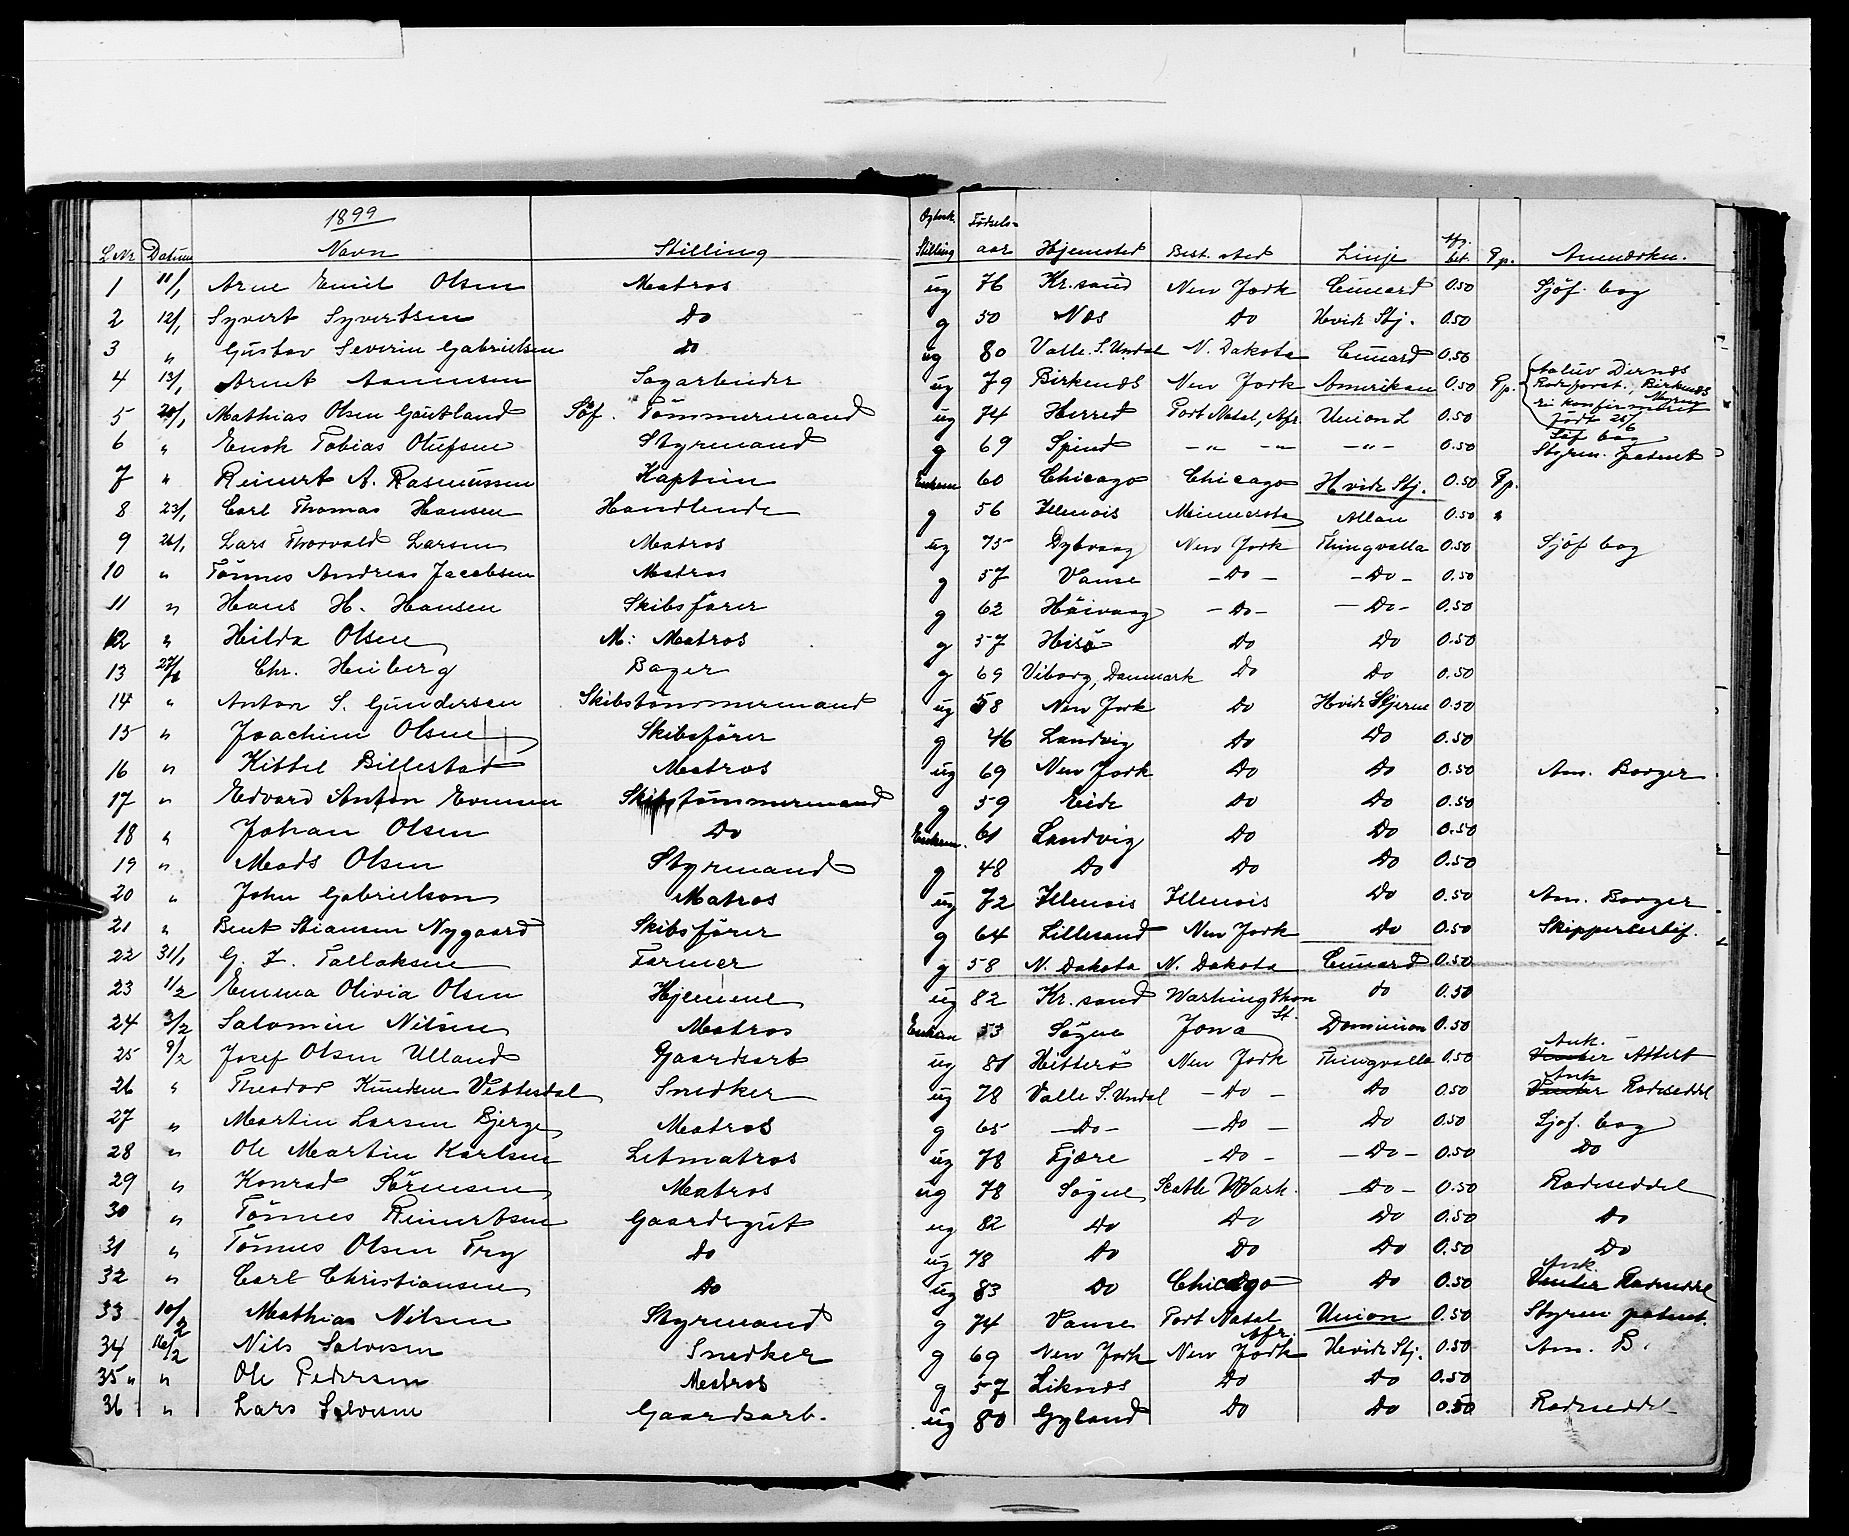 1899
L.Nr. Datum Navn Stilling Ægtesk. Stilling Fødsels-aar Hjemsted Best. sted Linje Afg. bet. Pp. Anmærkn.
1 11/1 Arne Emil Olsen Matros ug 76 Kr.sand New York Cunard 0.50 Sjöf. bog
2 12/1 Syvert Syvertsen Do g 50 Næs Do Hvide Stj. 0.50
3 " Gustav Severin Gabrielsen do ug 80 Valle S. Undal N. Dakota Cunard 0.50
4 13/1 Arnt Aanensen Sagarbeider ug 79 Birkenæs New York Amerikan 0.50 Pp.
5 20/1 Mathias Olsen Gautland Söf. Tömmermand ug 74 Herred Port Natal, Afr. Union L 0.50 Födt 25/6
Söf bog
6 " Enok Tobias Olufsen Styrmand g 69 Spind -"- -"- -"- 0.50 Styrm. patent
7 " Reinert A. Rasmussen Kaptein Enkem 60 Chicago Chicago Hvide Stj. 0.50 Pp.
8 23/1 Carl Thomas Hansen Handlende g 56 Illenois Minnesota Allan 0.50 "
9 26/1 Lars Thorvald Larsen Matros ug 75 Dybvaag New York Thingvalla 0.50 Sjöf bog
10 " Tönnes Andreas Jacobsen Matros g 57 Vanse -Do- -Do- 0.50
11 " Hans H. Hansen Skibsförer g 62 Höivaag -Do- -Do- 0.50
12 " Hilda Olsen M: Matros g 57 Hisö Do Do 0.50
13 27/1 Chr. Heiberg Bager g 69 Viborg, Danmark Do Do 0.50
14 " Anton S. Gundersen Skibstömmermand ug 58 New York Do Hvide Stjerne 0.50
15 " Joachim Olsen Skibsförer g 46 Landvig Do Do 0.50
16 " Kittel Billestad Matros ug 69 New York Do Do 0.50 Am. Borger
17 " Edvard Anton Evensen Skibstömmermand g 59 Eide Do Do 0.50
18 " Johan Olsen Do Enkem. 61 Landvig Do Do 0.50
19 " Mads Olsen Styrmand g 48 Do Do Do 0.50
20 " John Gabrielson Matros ug 72 Illenois Illenois Do 0.50 Am. Borger
21 " Bent Stiansen Nygaard Skibsförer g 64 Lillesand New York Do 0.50 Skippertestif.
22 31/1 G. T. Tallaksen Farmer g 58 N. Dakota N. Dakota Cunard 0.50
23 1/2 Emma Olivia Olsen Hjemme ug 82 Kr.sand Washingthon St. do 0.50
24 3/2 Salomin Nilsen Matros Enkem 53 Søgne Jova Dominion 0.50
25 9/2 Josef Olsen Ulland Gaardsarb ug 81 Hitterö New York Thingvalla 0.50 Ank. Venter Attest
26 " Theodor Knudsen Vettesdal Snedker ug 78 Valle S. Undal -Do- Do 0.50 Ank Venter Rodeseddel
27 " Martin Larsen Bjerge Matros g 65 -Do- -Do- Do 0.50 Sjöf. bog
28 " Ole Martin Karlsen Letmatros ug 78 Fjære -Do- -Do- 0.50 Do
29 " Konrad Sörensen Matros ug 78 Søgne Seatle Wash. -Do- 0.50 Rodeseddel
30 " Tönnes Reinertsen Gaardsgut ug 82 Do Do Do 0.50 Do
31 " Tönnes Olsen Try Do ug 78 Do Do Do 0.50 Do
32 " Carl Christiansen Do ug 83 Do Chicago Do 0.50 Ank. Venter Rodeseddel
33 10/2 Mathias Nilsen Styrmand g 74 Vanse Port Natal Afr. Union 0.50 Styrm patent.
34 16/2 Nils Salvesen Snedker g 69 New York New York Hvide Stj. 0.50 Am. B.
35 " " Ole Pedersen Matros g 57 Liknæs Do Do 0.50
36 " Lars Salvesen Gaardsarb. ug 80 Gyland Do Do 0.50 Rodeseddel